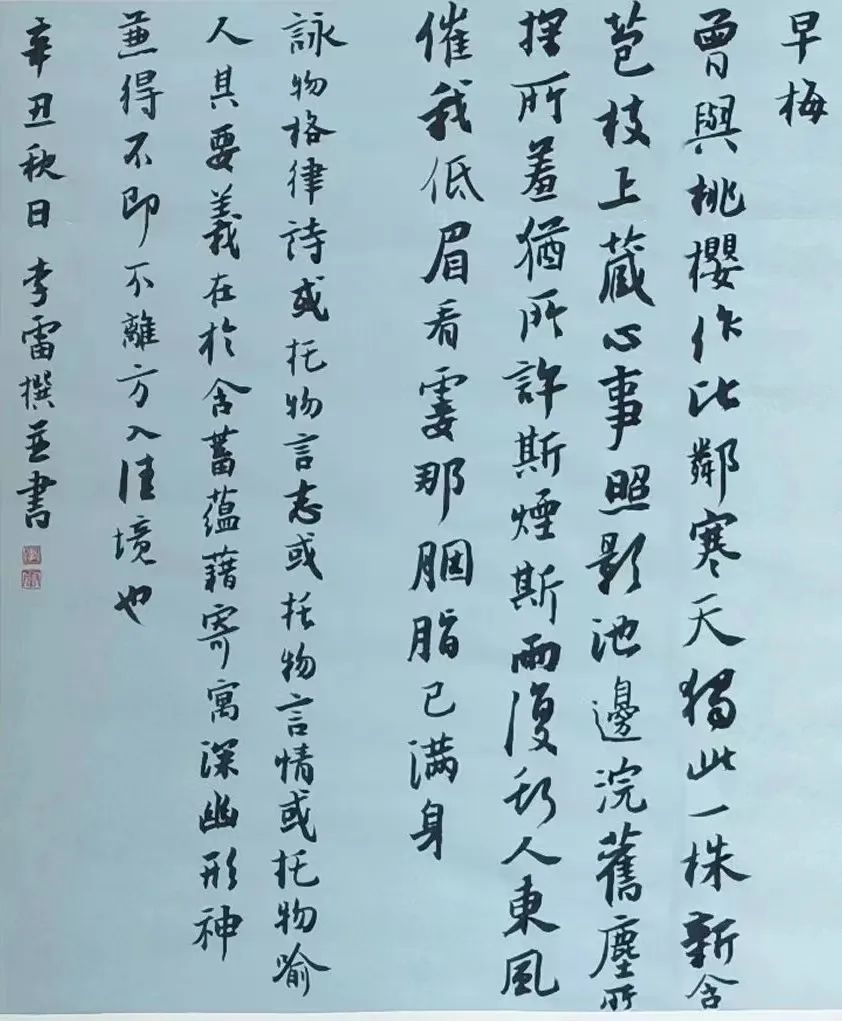 早梅
曾與桃櫻作比鄰寒天獨此一株新含
苞枝上蔵心事照影池邊浣舊塵所
所羞猶所許斯煙斯雨復斯人東風
催我低眉看霎那胭脂已满身
詠物格律詩或托物言志或托物言情或托物喻
人其要義在於含蓄蘊藉寄寓深幽形神
兼得不即不離方入佳境也
辛丑秋日 李雷撰並書